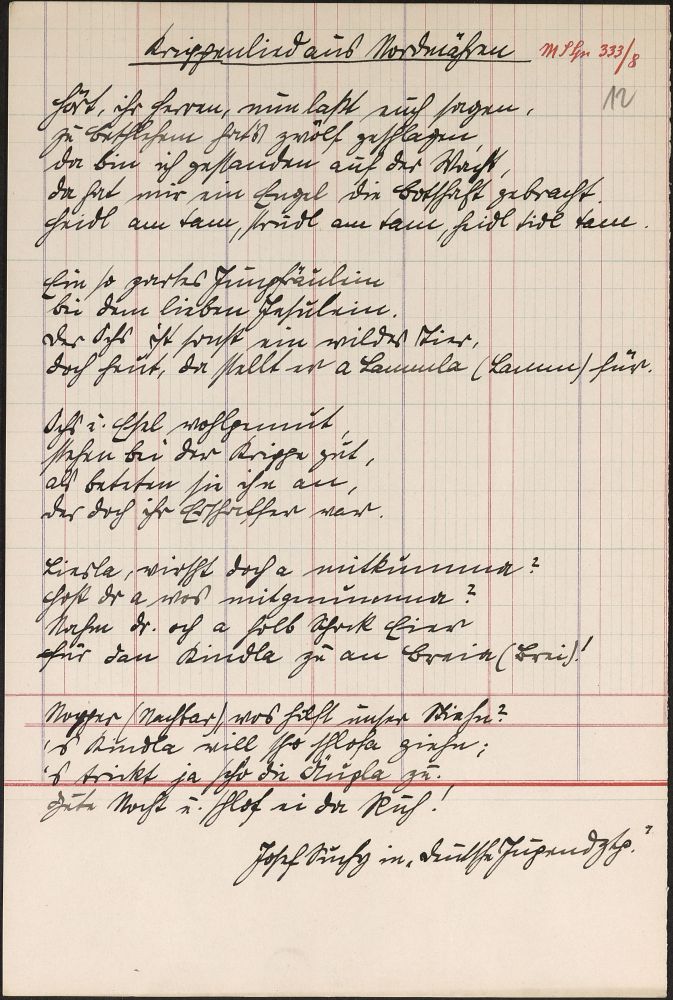 Krippenlied aus Nordmähren
333/8
12
Hört, ihr Herren, nun laßt euch sagen,
zu Bethlehem hat's zwölf geschlagen,
da bin ich gestanden auf der Wacht,
da hat mir ein Engel die Botschaft gebracht.
Heidl am tam, strudl am tam, heidl tidl tam.
Ein so zartes Jungfräulein
bei dem lieben Jesulein.
Der Ochs ist sonst ein wildes Tier,
doch heut, da stellt er a Lammla (Lamm) für.
Ochs u. Esel wohlgemut,
stehen bei der Krippe gut,
als beteten sie ihn an,
der doch ihr Erschaffer war.
Liesla, wirscht doch a mitkumma?
Host dr a wos mitgenumma?
Nahm dr. och a holb Schock Eier
für dan Kindla zu an Breia (Brei)!
Nopper (Nachbar) wos hilft unser Stiehn?
's Kindla will scho schlofa giehn;
's trickt ja scho die Äugla zu.
Gute Nocht u. schlof ei da Ruh!
Josef Suchy in „Deutsche Jugendztg."